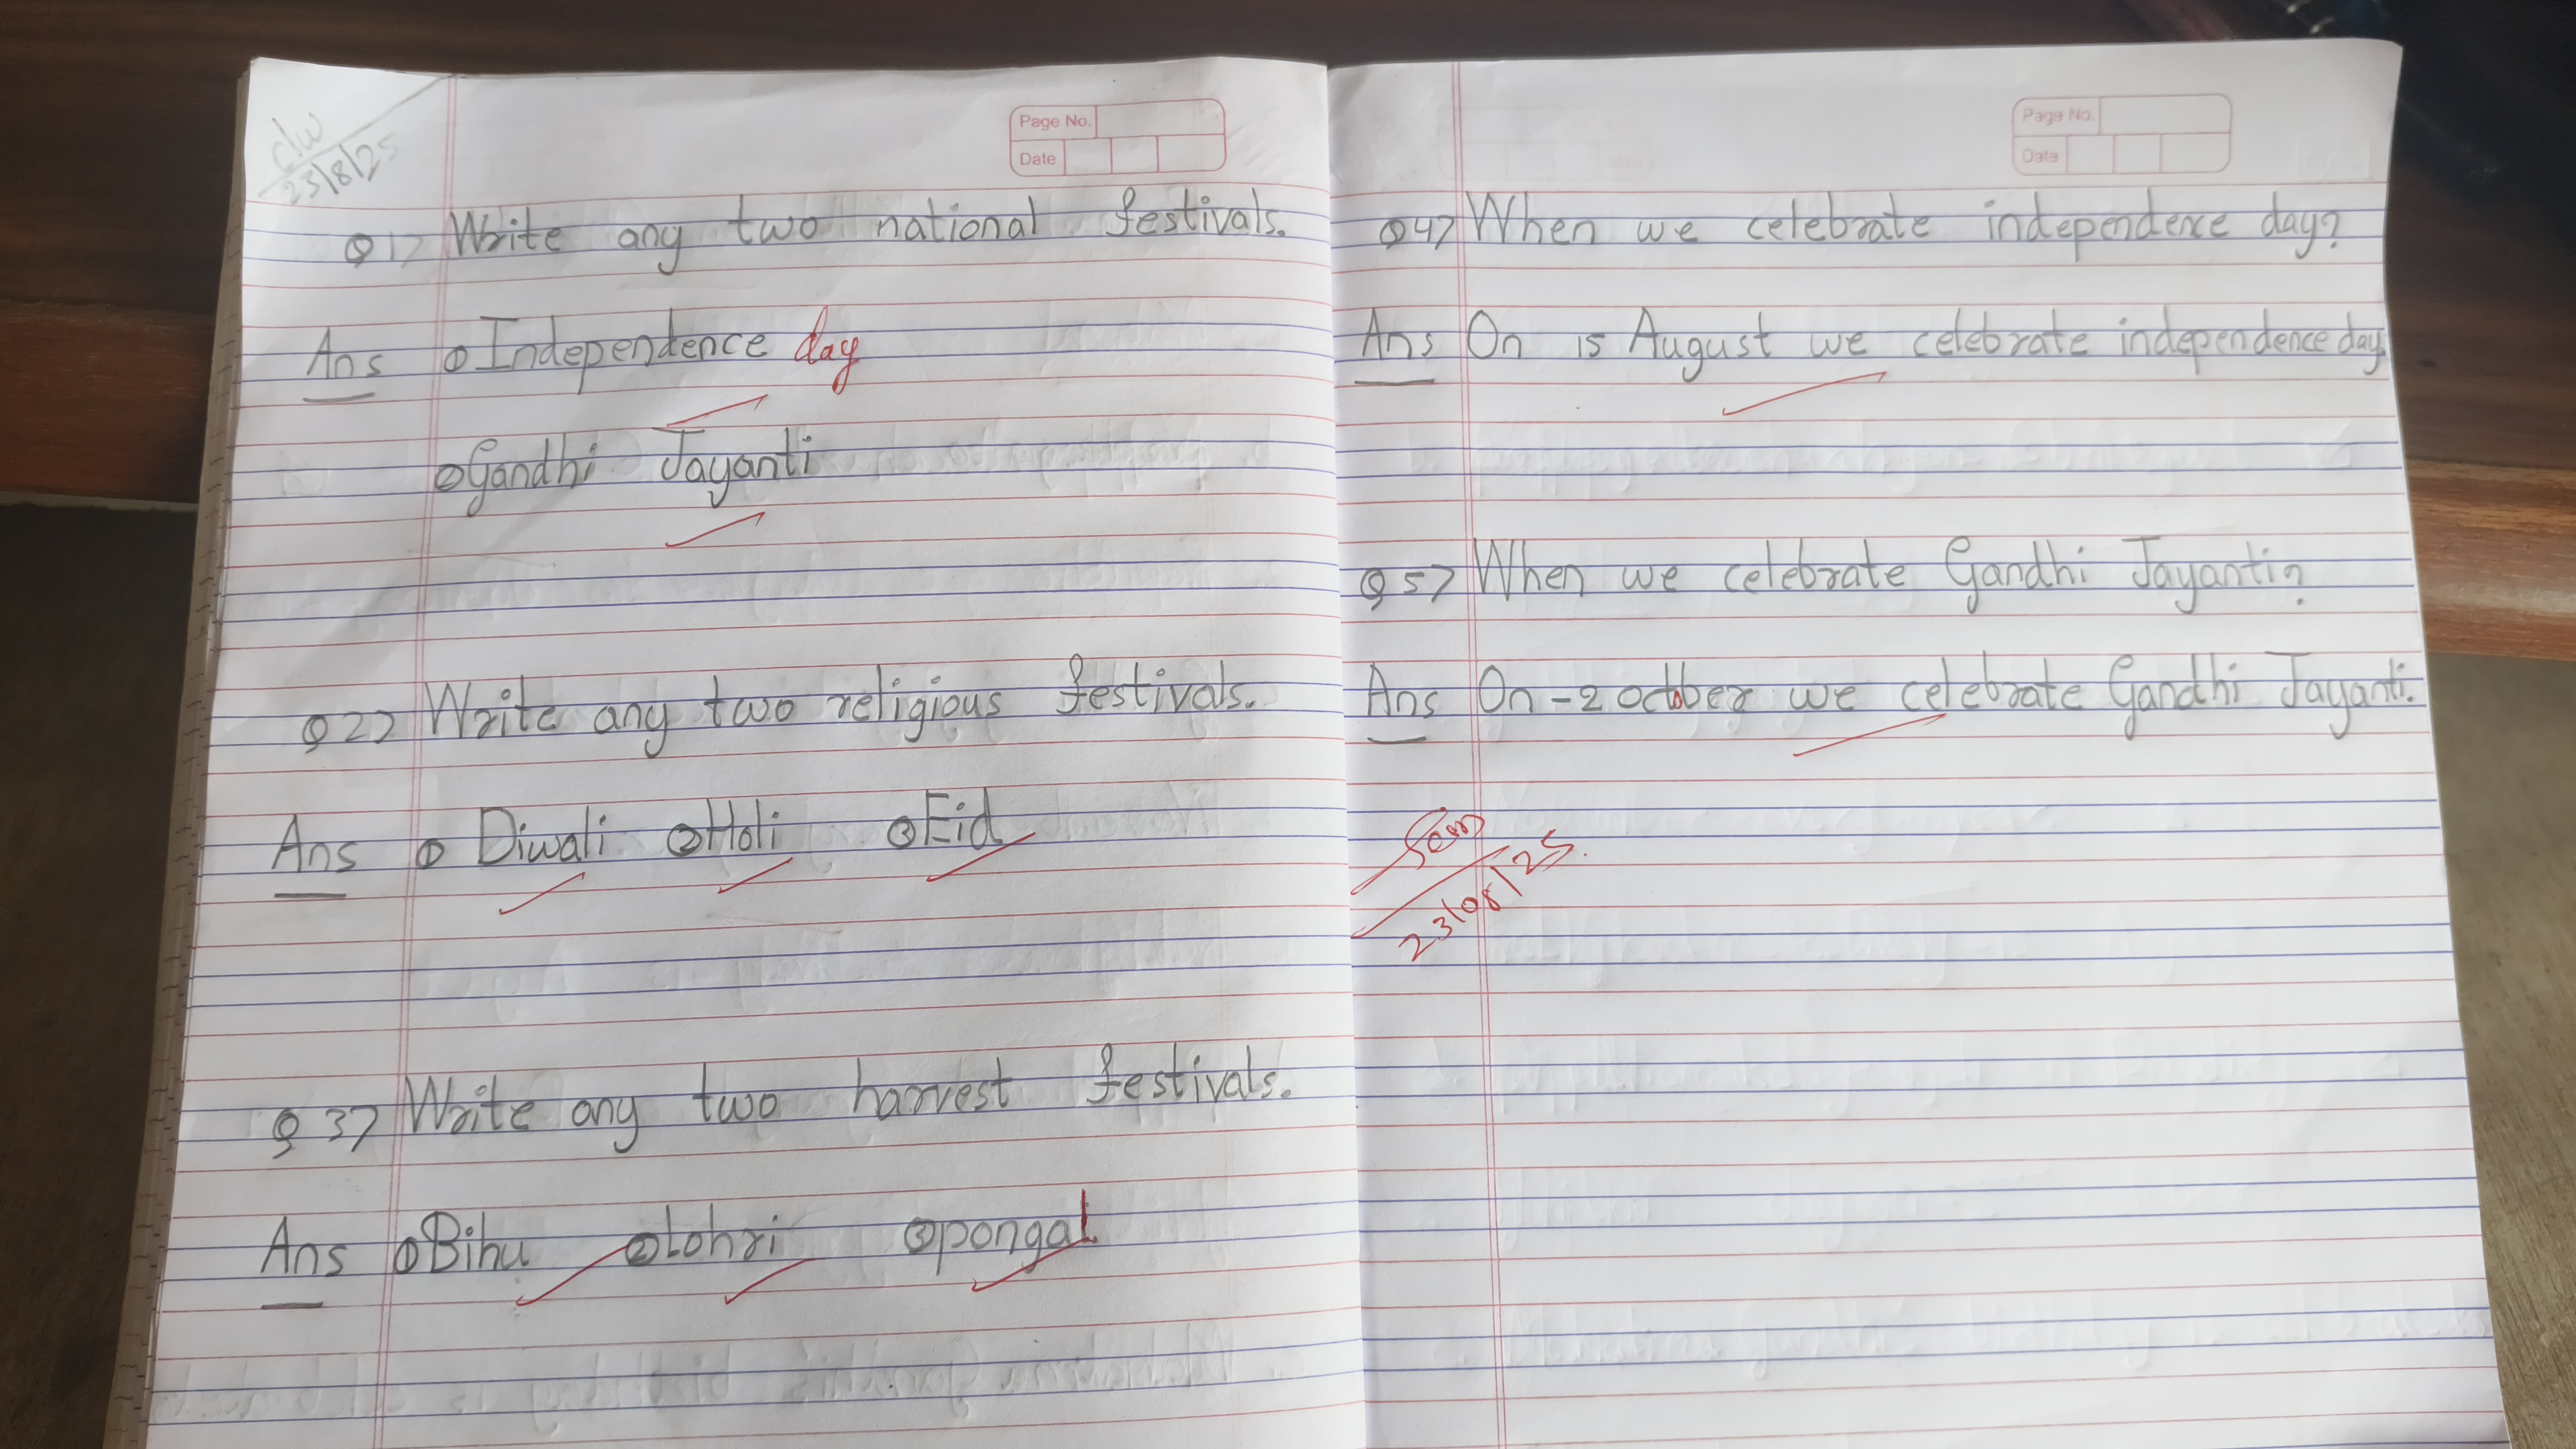 c/w
23/8/25
Page No.
Date
Q1> Write any two national festivals.
Ans ① Independence day
② Gandhi Jayanti
Q2> Write any two religious festivals.
Ans ① Diwali ② Holi ③ Eid
Q3> Write any two harvest festivals.
Ans ① Bihu ② lohri ③ pongal
Page No.
Date
Q4> When we celebrate independence day?
Ans On 15 August we celebrate independence day
Q5> When we celebrate Gandhi Jayanti?
Ans On - 2 october we celebrate Gandhi Jayanti.
23/08/25.